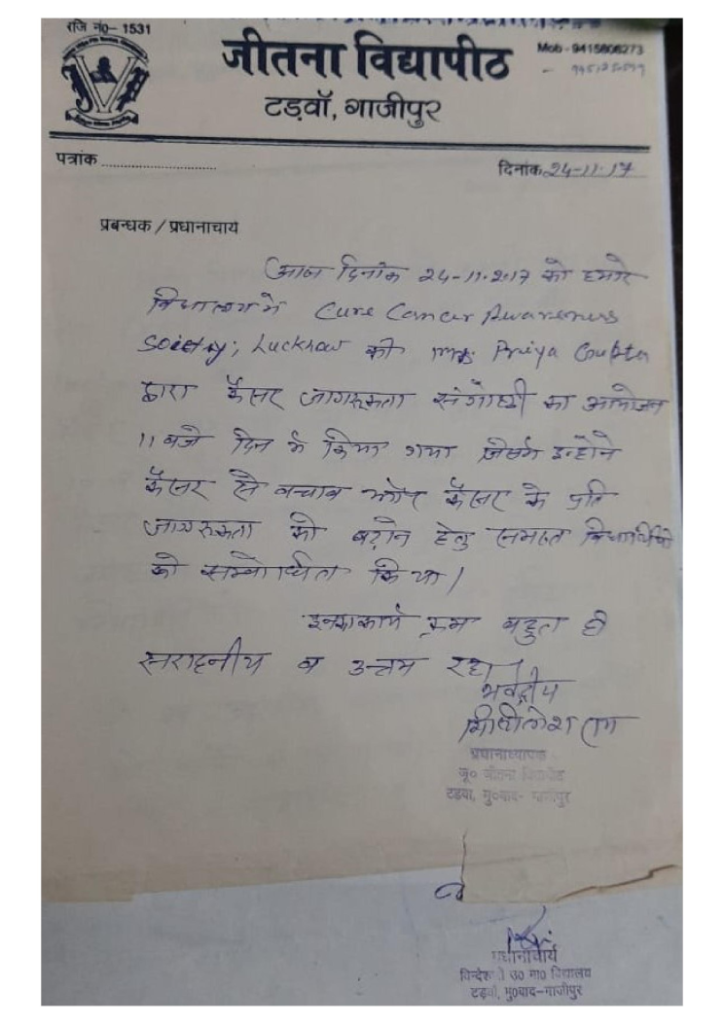 रजि नं०- 1531
जीतना विद्यापीठ
Mob - 9415806273
टड़वॉ, गाजीपुर
पत्रांक
दिनांक 24-11-17
प्रबन्धक / प्रधानाचार्य
आज दिनांक 24-11-2017 को हमारे
विद्यालय में Cure Cancer Awareness
Society, Lucknow की Priya Gupta
द्वारा कैंसर जागरूकता संगोष्ठी का आयोजन
11 बजे दिन में किया गया जिसमें इन्होंने
कैंसर से बचाव और कैंसर के प्रति
जागरूकता को बढ़ाने हेतु समस्त विद्यार्थियों
को सम्बोधित किया।
इनका कार्यक्रम बहुत ही
सराहनीय व उत्तम रहा।
भवदीय
प्रधानाध्यापक
जू० जीतना विद्यापीठ
टडवा, मु०बाद- गाजीपुर
प्रधानाचार्य
उ० मा० विद्यालय
टड़वॉ, मु०बाद-गाजीपुर